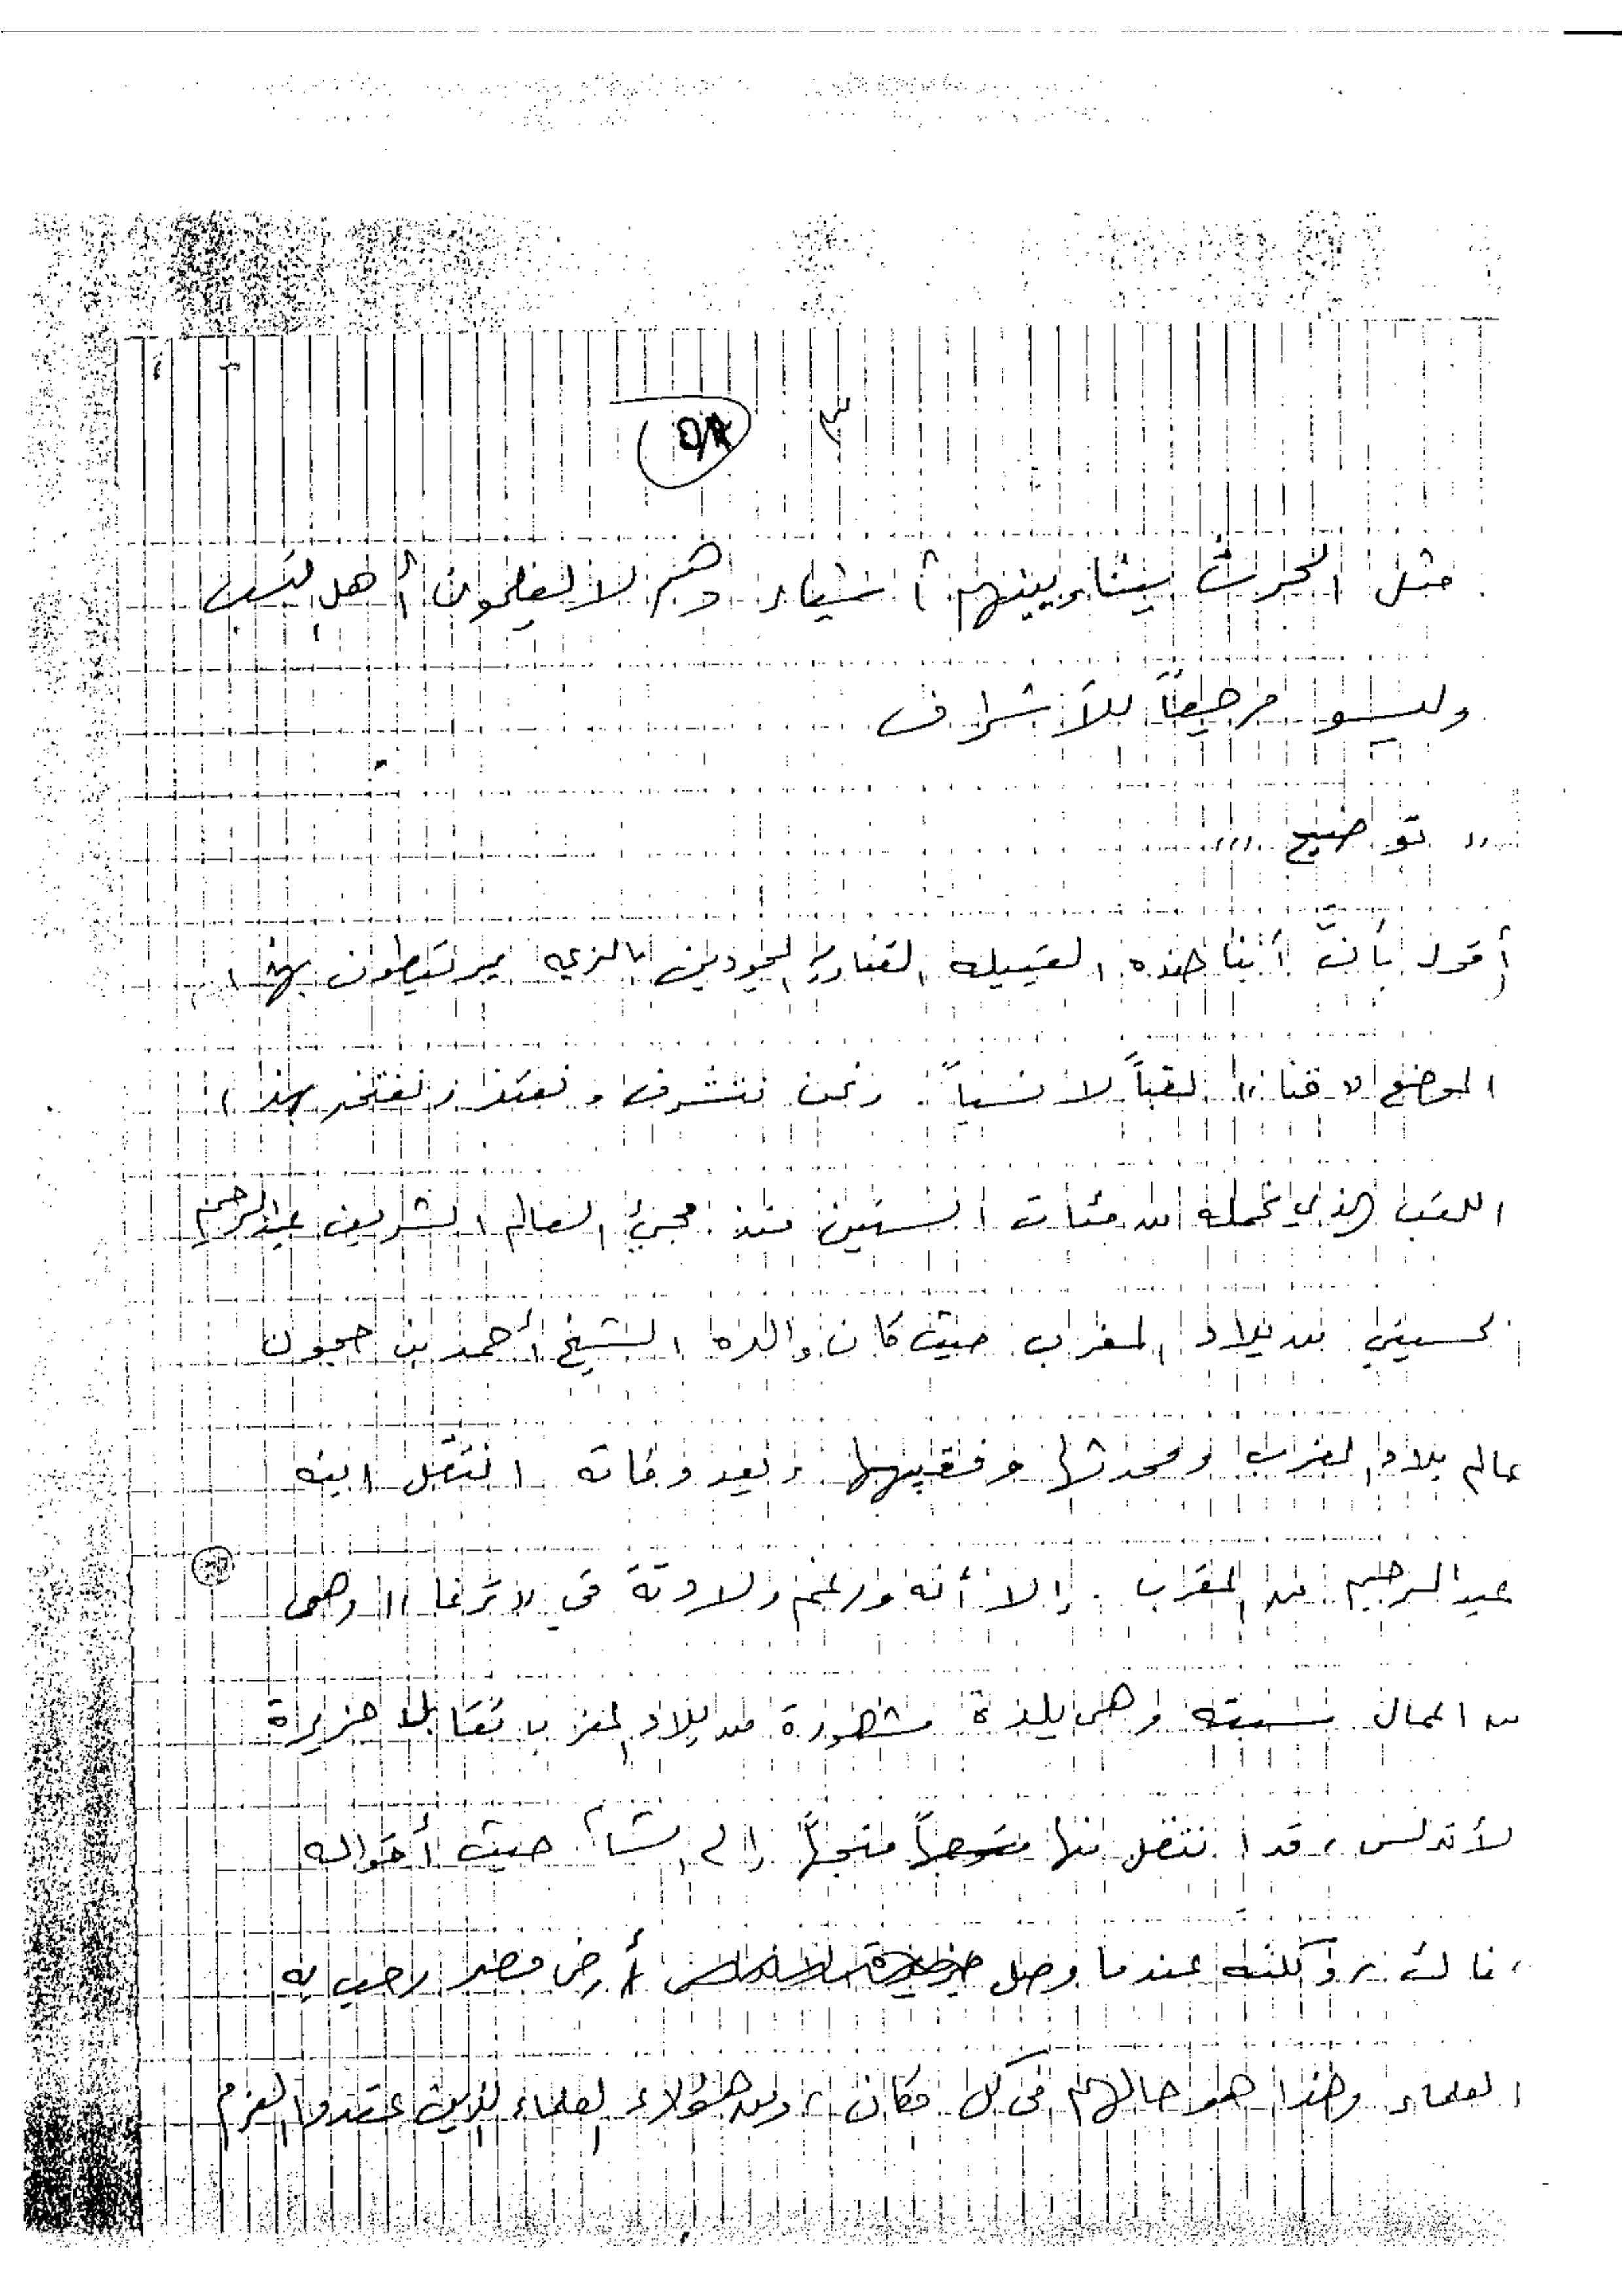 ٣
مثل الحرث بيننا وبينهم أشياء وهم لا يعلمون أهل نسب
وليسو مرجعاً للأشراف
" توضيح "
أقول بأن أبنا هذه القبيلة القناوية الموجودين بالذي يرتبطون بهذا
الموضع " قنا " لقباً لا نسباً . ونحن نتشرف ونعتز ونفتخر بهذا
اللقب الذي نحمله من مئات السنين منذ مجئ العالم الشريف عبدالرحيم
الحسيني من بلاد المغرب حيث كان والده الشيخ أحمد بن حجون
عالم بلاد المغرب ومحدثها وفقيهها وبعد وفاته انتقل ابنه
عبدالرحيم من المغرب . إلا أنه ورغم ولادته في " ترغا " وهي
من اعمال سبته وهي بلدة مشهورة من بلاد المغرب تقابل جزيرة
الأندلس ، قد انتقل منها متجهاً إلى الشام حيث أخواله
هناك ، ولكنه عندما وصل أرض مصر رحب به
العلماء وهذا هو حالهم في كل مكان ، ومن هؤلاء العلماء الذين عقدوا العزم